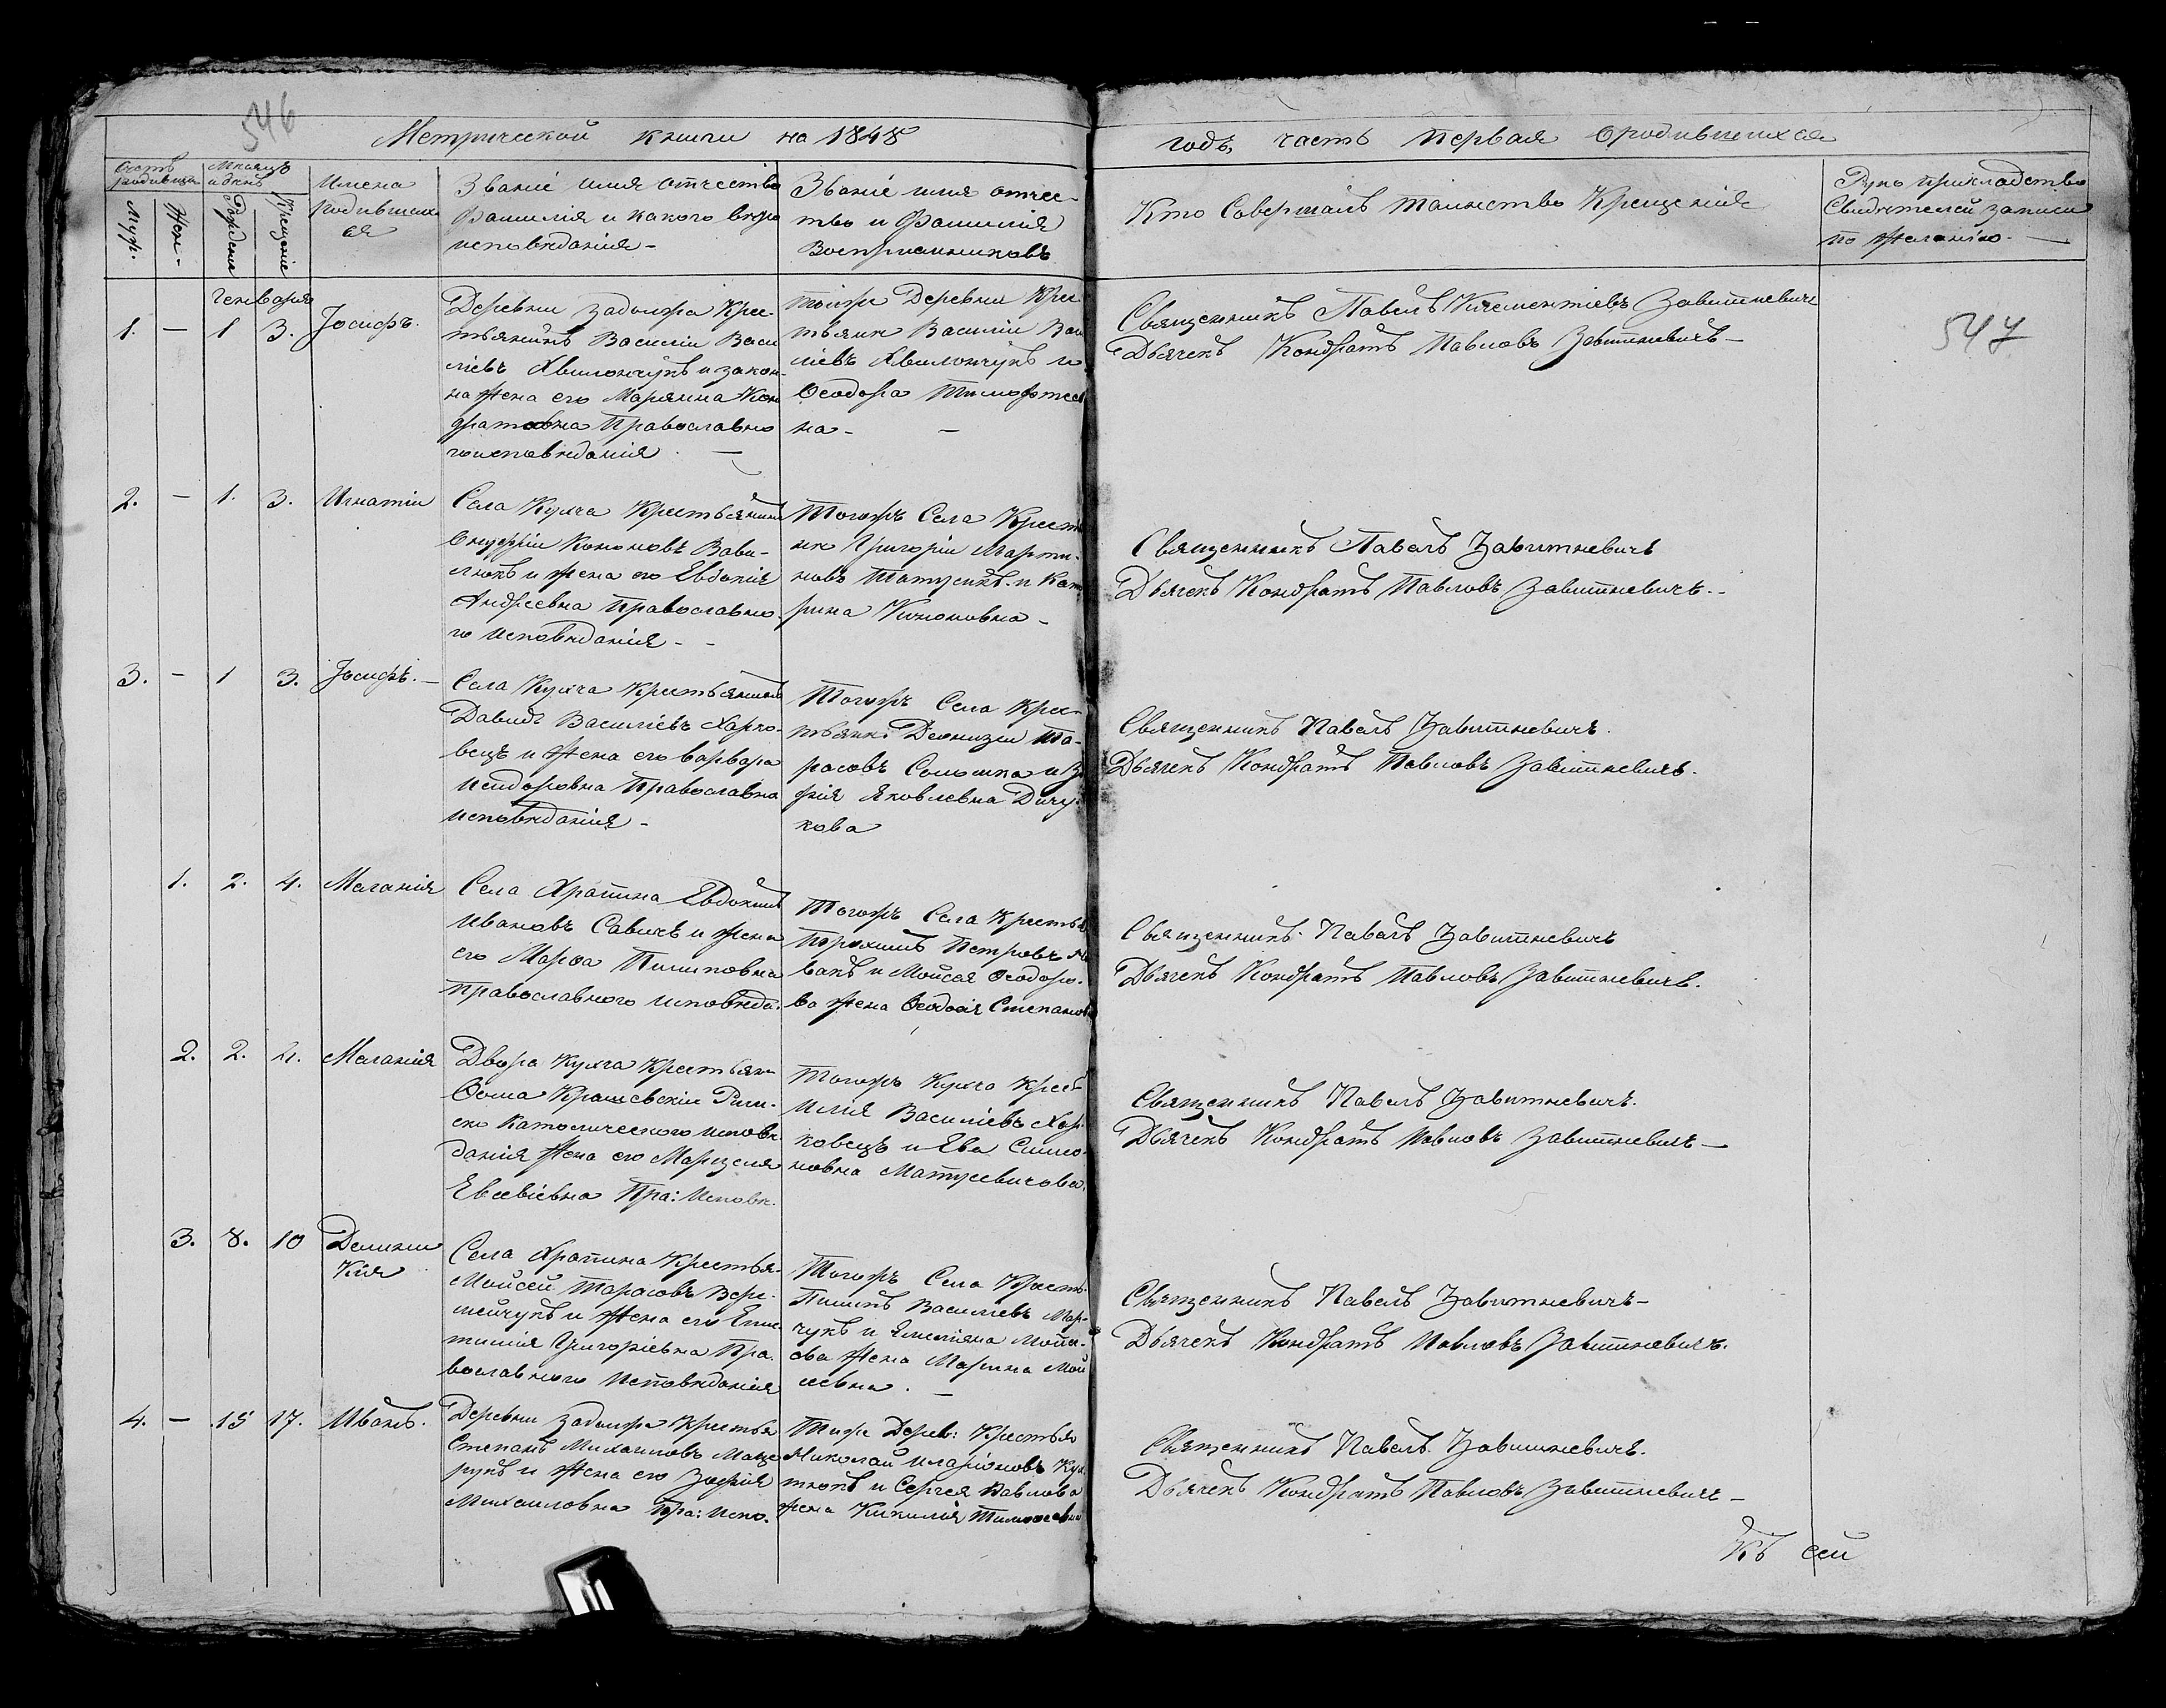 546
Метрической книги на 1848
годъ, часть первая о родившихся
Счетъ родивших
Мѣсяцъ и день
Муж.
Жен.
Рождения
Крещеніе
Имена
родивших
ся
Званіе имя отчество
Фамилія и какого вѣро
исповѣданія -
Званіе имя отчес-
тво и Фамилія
Воспріемниковъ
Кто Совершалъ таинство Крещенія
Руко прикладство
Свидѣтелей записи
по желанію. —
547
Генваря
1. — 1 3. Іосифъ.
Деревни Задолжа Крес-
тьянинъ Василій Васи
ліевъ Хвилончукъ и закон-
на жена его Маріянна Кон
дратовна Православно
го исповѣданія. —
тойже Деревни Крес
тьянк Василій Ва
ліевъ Хвилончукъ и
Ѳеодора Тимофее
на - —
Священникъ Павелъ Климентіевъ Завитневичъ
Дьячекъ Кондратъ Павловъ Завитневичъ —
2. — 1. 3. Игнатій
Села Кухча Крестьянинъ
Онуфрій Кононовъ Вави-
люкъ и жена его Евдокія
Андреевна Православно-
го исповѣданія - -
Тогожъ Села Крест
нк Григорій Марти-
новъ и Кат
рина Кононовна -
Священникъ Павелъ Завитневичъ
Дьячекъ Кондратъ Павловъ Завитневичъ. -
3. — 1 3. Іосифъ. —
Села Кухча Крестьянинъ
Давидъ Василіевъ Харко-
вецъ и жена его Варвара
Исидоровна Православна
исповѣданія -
Тогожъ Села Крес-
тьянк. Деонизій Та-
расовъ Соломка и З
фія Яковлевна Дичу-
кова
Священникъ Павелъ Завитневичъ.
Дьячекъ Кондратъ Павловъ Завитневичъ.
1. 2. 4. Меланія
Села Храпина Евдокимъ
Ивановъ Савичъ и жена
его Марѳа Пилиповна
Православного исповѣда.
Тогожъ Села Крестья
Прохимъ Петровъ
вакъ и Мойсея Ѳеодоро-
ва жена Ѳеодосія Степанов
Священникъ Павелъ Завитневичъ
Дьячекъ Кондратъ Павловъ Завитневичъ.
2. 2. 4. Меланія
Двора Кухча Крестьян
Ѳома Крашевскій Рим-
ско Католического исповѣ-
данія жена его Марцеля
Евсевіевна Пра: Исповѣ.
Тогожъ Кухча Крест
Илія Василіевъ Хар-
ковецъ и Ева Симо-
новна Матусевичова.
Священникъ Павелъ Завитневичъ.
Дьячекъ Кондратъ Павловъ Завитневичъ —
3. 8. 10 Доминикія
Села Храпина Крестья-
Мойсей Тарасовъ Вере-
мейчукъ и жена его Епис-
тимія Григоріевна Пра-
вославного Исповѣданія
Тогожъ Села Кресть.
Пилипъ Василіевъ Мар-
чукъ и Емеліяна
ова жена Марина Мой
сеевна. —
Священникъ Павелъ Завитневичъ —
Дьячекъ Кондратъ Павловъ Завитневичъ.
4. — 15 17. Иванъ.
Деревни Задолжа Крестья
Степанъ Михаиловъ Маце
рукъ и жена его Зофія
Михаиловна Пра: Испо.
Тиже Дерев: Крестья
Николай Иларіоновъ
тюкъ и Сергея Павлова
жена Кикилія Тимоѳеевна
Священникъ Павелъ Завитневичъ.
Дьячекъ Кондратъ Павловъ Завитневичъ —
Къ сей